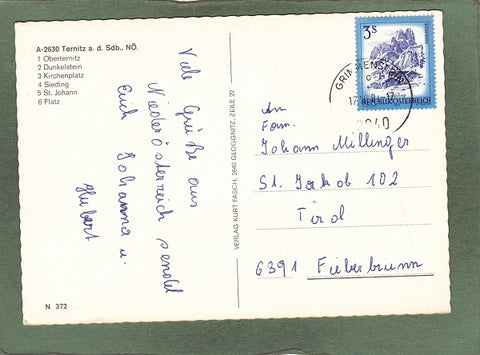 A-2630 Ternitz a. d. Sdb., NÖ.
1 Oberternitz
2 Dunkelstein
3 Kirchenplatz
4 Sieding
5 St. Johann
6 Flatz
Viele Grüße aus
Niederösterreich sendet
Euch Johanna u.
Hubert
N 372
VERLAG KURT FASCH, 2640 GLOGGNITZ, ZEILE 22
3S
REPUBLIK ÖSTERREICH
An
Fam.
Johann Millinger
St. Jakob 102
Tirol
6391 Fieberbrunn